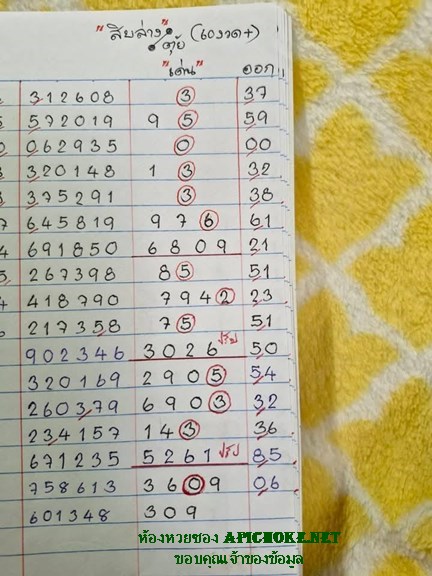 "สิบล่าง" (60งวด+)
ตุ้ย
"เด่น" ออก
312608 3 37
5 572019 9 5 59
0 062935 0 00
320148 1 3 32
375291 3 38
7 645819 9 7 6 61
4 691850 6 8 0 9 21
5 267398 8 5 51
4 418790 7 9 4 2 23
217358 7 5 51
902346 3 0 2 6 ปรับ 50
320169 2 9 0 5 54
260379 6 9 0 3 32
234157 1 4 3 36
671235 5 2 6 1 ปรับ 85
758613 3 6 0 9 06
601348 3 0 9
ห้องหวยซอง APICHOKE.NET
ขอบคุณเจ้าของข้อมูล